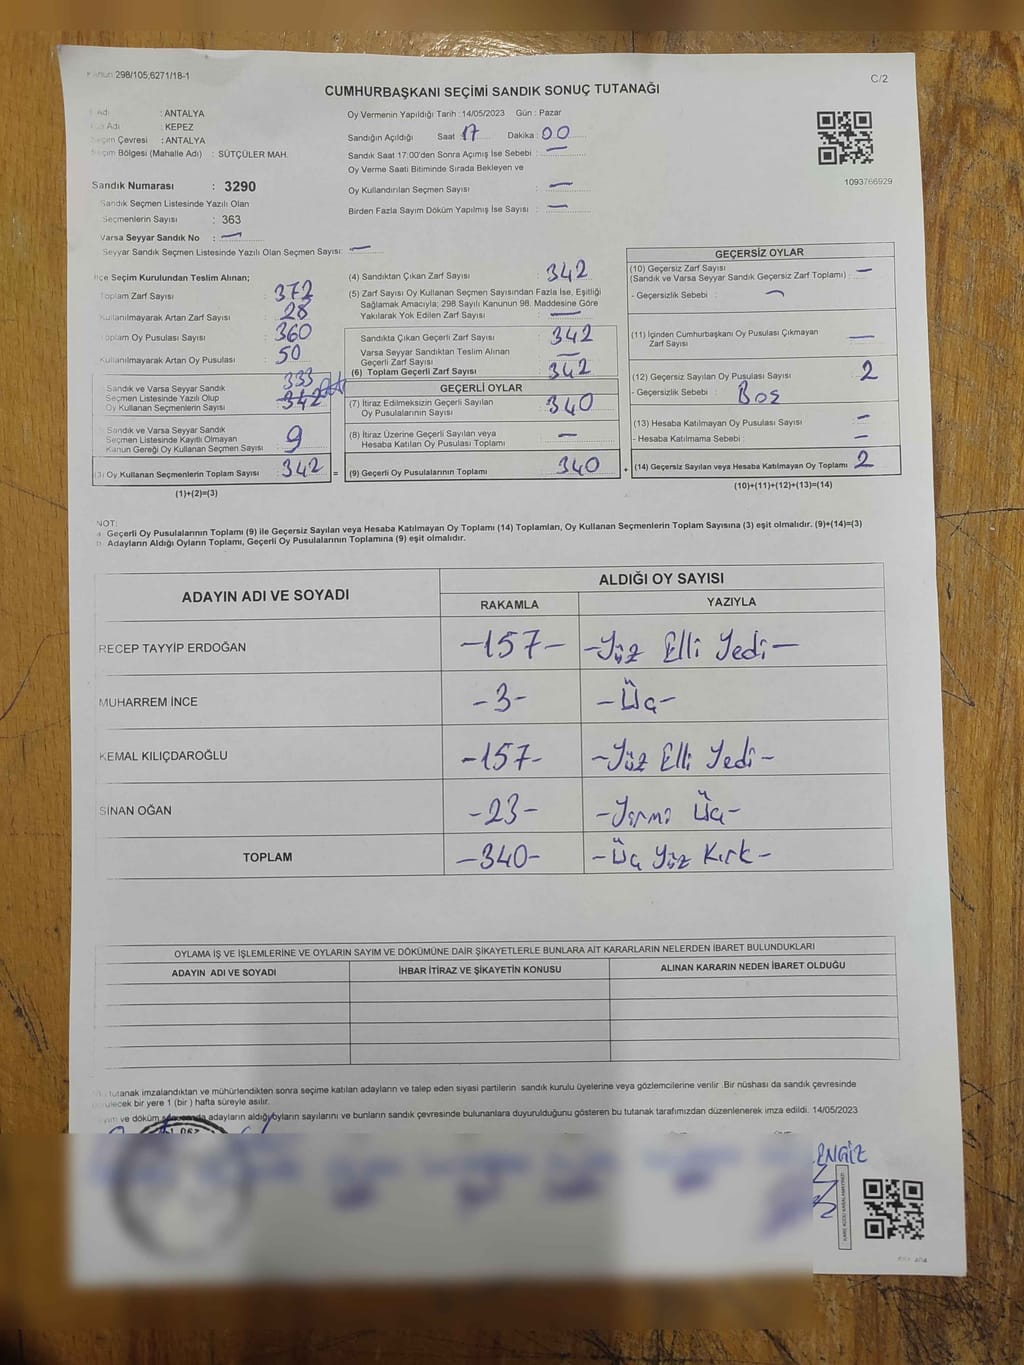 298/105,6271/18-1
C/2
CUMHURBAŞKANI SEÇİMİ SANDIK SONUÇ TUTANAĞI
Adı : ANTALYA
Adı : KEPEZ
Seçim Çevresi : ANTALYA
Seçim Bölgesi (Mahalle Adı) : SÜTÇÜLER MAH.
Sandık Numarası : 3290
Sandık Seçmen Listesinde Yazılı Olan
Seçmenlerin Sayısı : 363
Varsa Seyyar Sandık No : —
Seyyar Sandık Seçmen Listesinde Yazılı Olan Seçmen Sayısı: —
Oy Vermenin Yapıldığı Tarih :14/05/2023 Gün : Pazar
Sandığın Açıldığı Saat :17 Dakika :00
Sandık Saat 17:00'den Sonra Açımış İse Sebebi : —
Oy Verme Saati Bitiminde Sırada Bekleyen ve
Oy Kullandırılan Seçmen Sayısı : —
Birden Fazla Sayım Döküm Yapılmış İse Sayısı : —
1093766929
İlçe Seçim Kurulundan Teslim Alınan;
Toplam Zarf Sayısı : 372
Kullanılmayarak Artan Zarf Sayısı : 28
Toplam Oy Pusulası Sayısı : 360
Kullanılmayarak Artan Oy Pusulası : 50
Sandık ve Varsa Seyyar Sandık
Seçmen Listesinde Yazılı Olup
Oy Kullanan Seçmenlerin Sayısı : 333
342
Sandık ve Varsa Seyyar Sandık
Seçmen Listesinde Kayıtlı Olmayan
Kanun Gereği Oy Kullanan Seçmen Sayısı : 9
(3) Oy Kullanan Seçmenlerin Toplam Sayısı : 342 =
(1)+(2)=(3)
(4) Sandıktan Çıkan Zarf Sayısı : 342
(5) Zarf Sayısı Oy Kullanan Seçmen Sayısından Fazla İse, Eşitliği
Sağlamak Amacıyla; 298 Sayılı Kanunun 98. Maddesine Göre
Yakılarak Yok Edilen Zarf Sayısı : —
Sandıkta Çıkan Geçerli Zarf Sayısı : 342
Varsa Seyyar Sandıktan Teslim Alınan
Geçerli Zarf Sayısı : —
(6) Toplam Geçerli Zarf Sayısı : 342
GEÇERLİ OYLAR
(7) İtiraz Edilmeksizin Geçerli Sayılan
Oy Pusulalarının Sayısı : 340
(8) İtiraz Üzerine Geçerli Sayılan veya
Hesaba Katılan Oy Pusulası Toplamı : —
(9) Geçerli Oy Pusulalarının Toplamı : 340 +
GEÇERSİZ OYLAR
(10) Geçersiz Zarf Sayısı : —
(Sandık ve Varsa Seyyar Sandık Geçersiz Zarf Toplamı)
- Geçersizlik Sebebi : —
(11) İçinden Cumhurbaşkanı Oy Pusulası Çıkmayan
Zarf Sayısı : —
(12) Geçersiz Sayılan Oy Pusulası Sayısı : 2
- Geçersizlik Sebebi : Boş
(13) Hesaba Katılmayan Oy Pusulası Sayısı : —
- Hesaba Katılmama Sebebi : —
(14) Geçersiz Sayılan veya Hesaba Katılmayan Oy Toplamı : 2
(10)+(11)+(12)+(13)=(14)
NOT:
a Geçerli Oy Pusulalarının Toplamı (9) ile Geçersiz Sayılan veya Hesaba Katılmayan Oy Toplamı (14) Toplamları, Oy Kullanan Seçmenlerin Toplam Sayısına (3) eşit olmalıdır. (9)+(14)=(3)
b Adayların Aldığı Oyların Toplamı, Geçerli Oy Pusulalarının Toplamına (9) eşit olmalıdır.
ADAYIN ADI VE SOYADI
ALDIĞI OY SAYISI
RAKAMLA YAZIYLA
RECEP TAYYİP ERDOĞAN -157- -Yüz Elli Yedi-
MUHARREM İNCE -3- -Üç-
KEMAL KILIÇDAROĞLU -157- -Yüz Elli Yedi-
SİNAN OĞAN -23- -Yirmi Üç-
TOPLAM -340- -Üç Yüz Kırk-
OYLAMA İŞ VE İŞLEMLERİNE VE OYLARIN SAYIM VE DÖKÜMÜNE DAİR ŞİKAYETLERLE BUNLARA AİT KARARLARIN NELERDEN İBARET BULUNDUKLARI
ADAYIN ADI VE SOYADI İHBAR İTİRAZ VE ŞİKAYETİN KONUSU ALINAN KARARIN NEDEN İBARET OLDUĞU
tutanak imzalandıktan ve mühürlendikten sonra seçime katılan adayların ve talep eden siyasi partilerin sandık kurulu üyelerine veya gözlemcilerine verilir .Bir nüshası da sandık çevresinde
bir yere 1 (bir ) hafta süreyle asılır.
ve döküm adayların aldığı oyların sayılarını ve bunların sandık çevresinde bulunanlara duyurulduğunu gösteren bu tutanak tarafımızdan düzenlenerek imza edildi. 14/05/2023